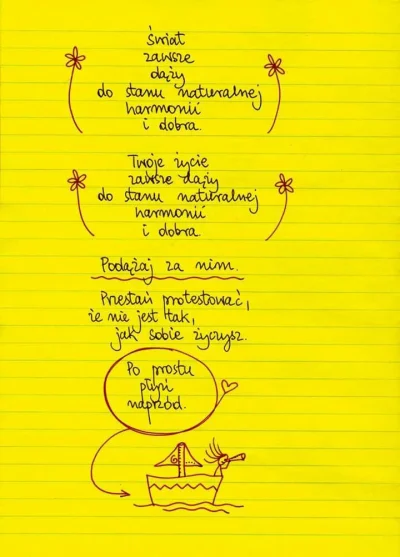 świat
zawsze
dąży
do stanu naturalnej
harmonii
i dobra.
Twoje życie
zawsze dąży
do stanu naturalnej
harmonii
i dobra.
Podążaj za nim.
Przestań protestować,
że nie jest tak,
jak sobie życzysz.
Po prostu
płyń
naprzód.